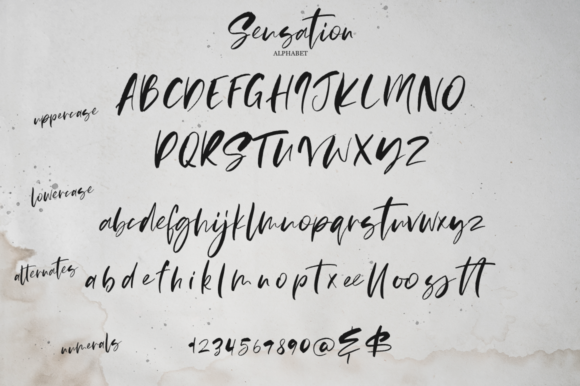 Sensation
ALPHABET
uppercase
ABCDEFGHIJKLMNO
PQRSTUVWXYZ
lowercase
abcdefghijklmnopqrstuvwxyz
alternates
abdefhiklmnoptxeelloosstt
numerals
1234567890@&$